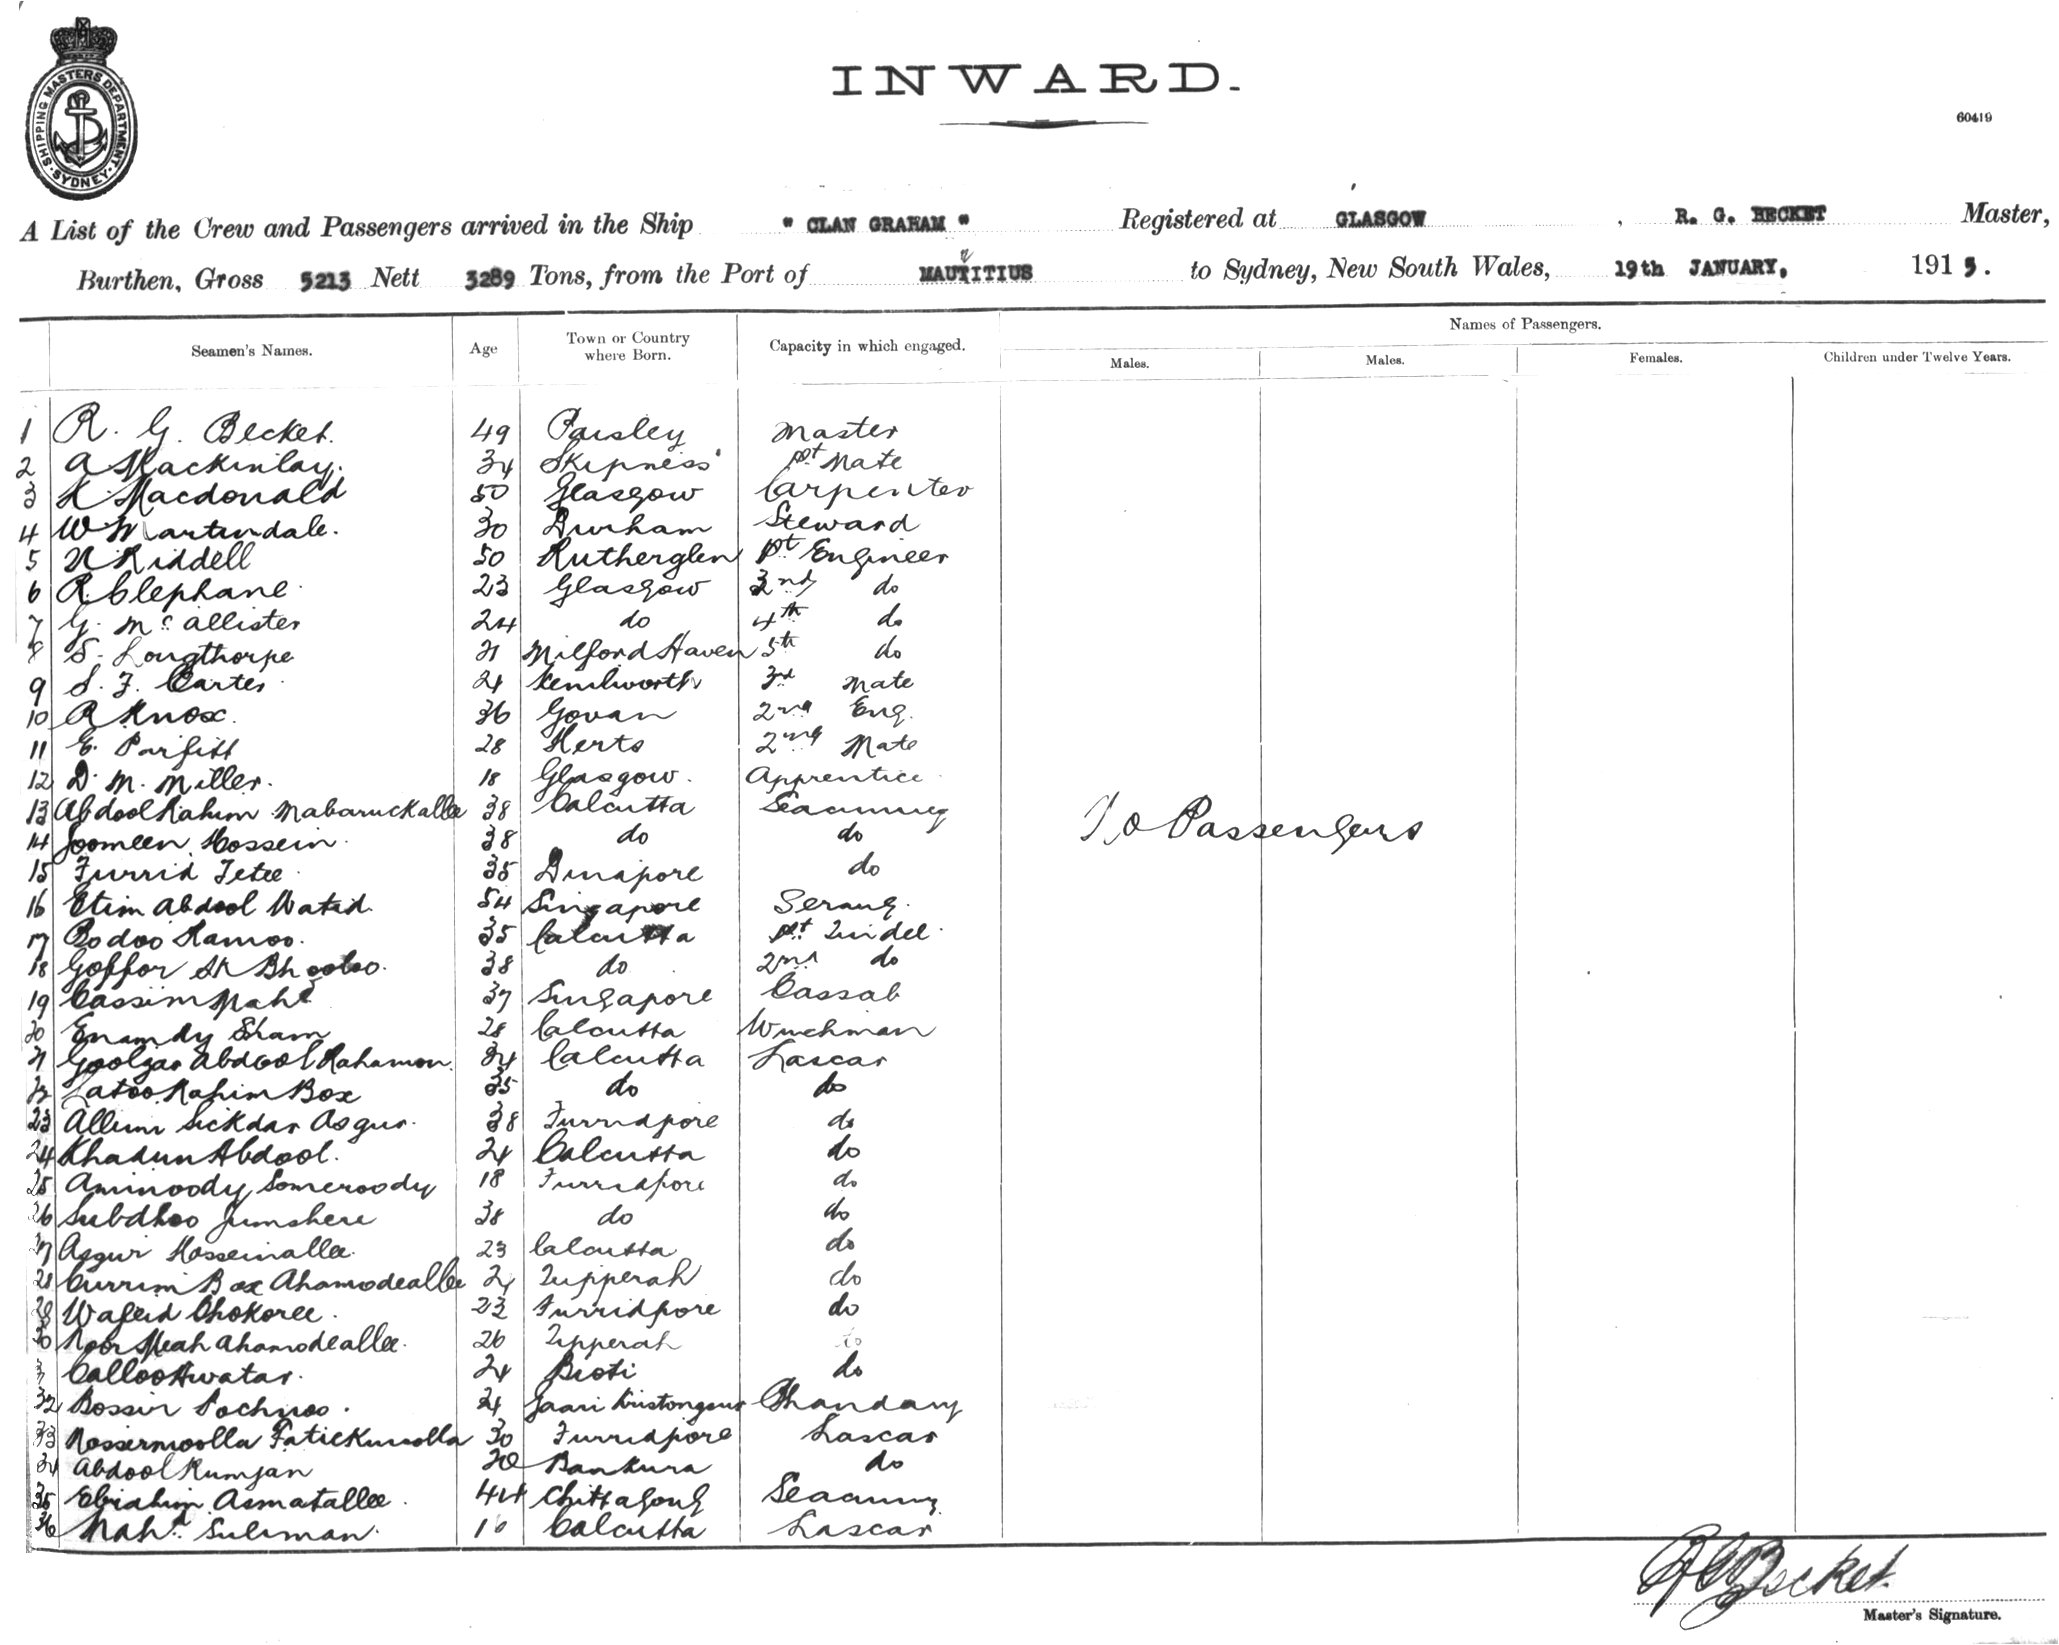 SHIPPING MASTERS DEPARTMENT
SYDNEY
INWARD.
60419
A List of the Crew and Passengers arrived in the Ship " CLAN GRAHAM " Registered at GLASGOW , R. G. BECKET Master,
Burthen, Gross 5213 Nett 3289 Tons, from the Port of MAUTITIUS r to Sydney, New South Wales, 19th JANUARY, 1915.
Names of Passengers.
Seamen's Names. Age Town or Country where Born. Capacity in which engaged. Males. Males. Females. Children under Twelve Years.
1 R. G. Becket. 49 Paisley Master
2 A Mackinlay. 34 Skipness 1st Mate
3 K Macdonald 50 Glasgow Carpenter
4 W Martindale. 30 Durham Steward
5 Riddell 50 Rutherglen 1st Engineer
6 R. Clephane 23 Glasgow 3rd do
7 G. McAllister 24 do 4th do
8 S. Longthorpe 21 Milford Haven 5th do
9 S. F. Carter 21 Kenilworth 3rd Mate
10 R Knox. 36 Govan 2nd Eng.
11 E. Parfitt 28 Herts 2nd Mate
12 D. M. Miller. 18 Glasgow. Apprentice
13 Abdool Rahim Mabaruckallee 38 Calcutta Seacunny
14 Joomeen Hossein 38 do do
15 Furrid Tetee 35 Dinapore do
16 Etim Abdool Watid. 54 Singapore Serang.
17 Bodoo Ramoo. 35 Calcutta 1st Tindel.
18 Goffor Sk Bhooloo. 38 do 2nd do
19 Cassim Mahd 37 Singapore Cassab
20 Enamdy Sham 28 Calcutta Winchman
21 Goolzar Abdool Rahamon. 34 Calcutta Lascar
22 Latoo Rahim Box 35 do do
23 Allim Sickdar Asgur. 38 Furridpore do
24 Khadim Abdool. 24 Calcutta do
25 Aminoody Someroody 18 Furridpore do
26 Subdhoo Jumshere 38 do do
27 Asgur Hosseinallee. 23 Calcutta do
28 Currim Box Ahamodeallee 21 Tipperah do
29 Wafeid Chokoree. 23 Furridpore do
30 Noor Meah Ahamodeallee. 26 Tipperah do
31 Calloo Awatar. 24 do
32 Bossir Pochnoo. 21 Bhandary
33 Nossermoolla Fatickmoolla 30 Furridpore Lascar
34 Abdool Rumjan Bankura do
35 Ebrahim Asmatallee. 44 Chittagong Seacunny
36 Mahd Suliman. Calcutta Lascar
No Passengers
R G Becket.
Master's Signature.